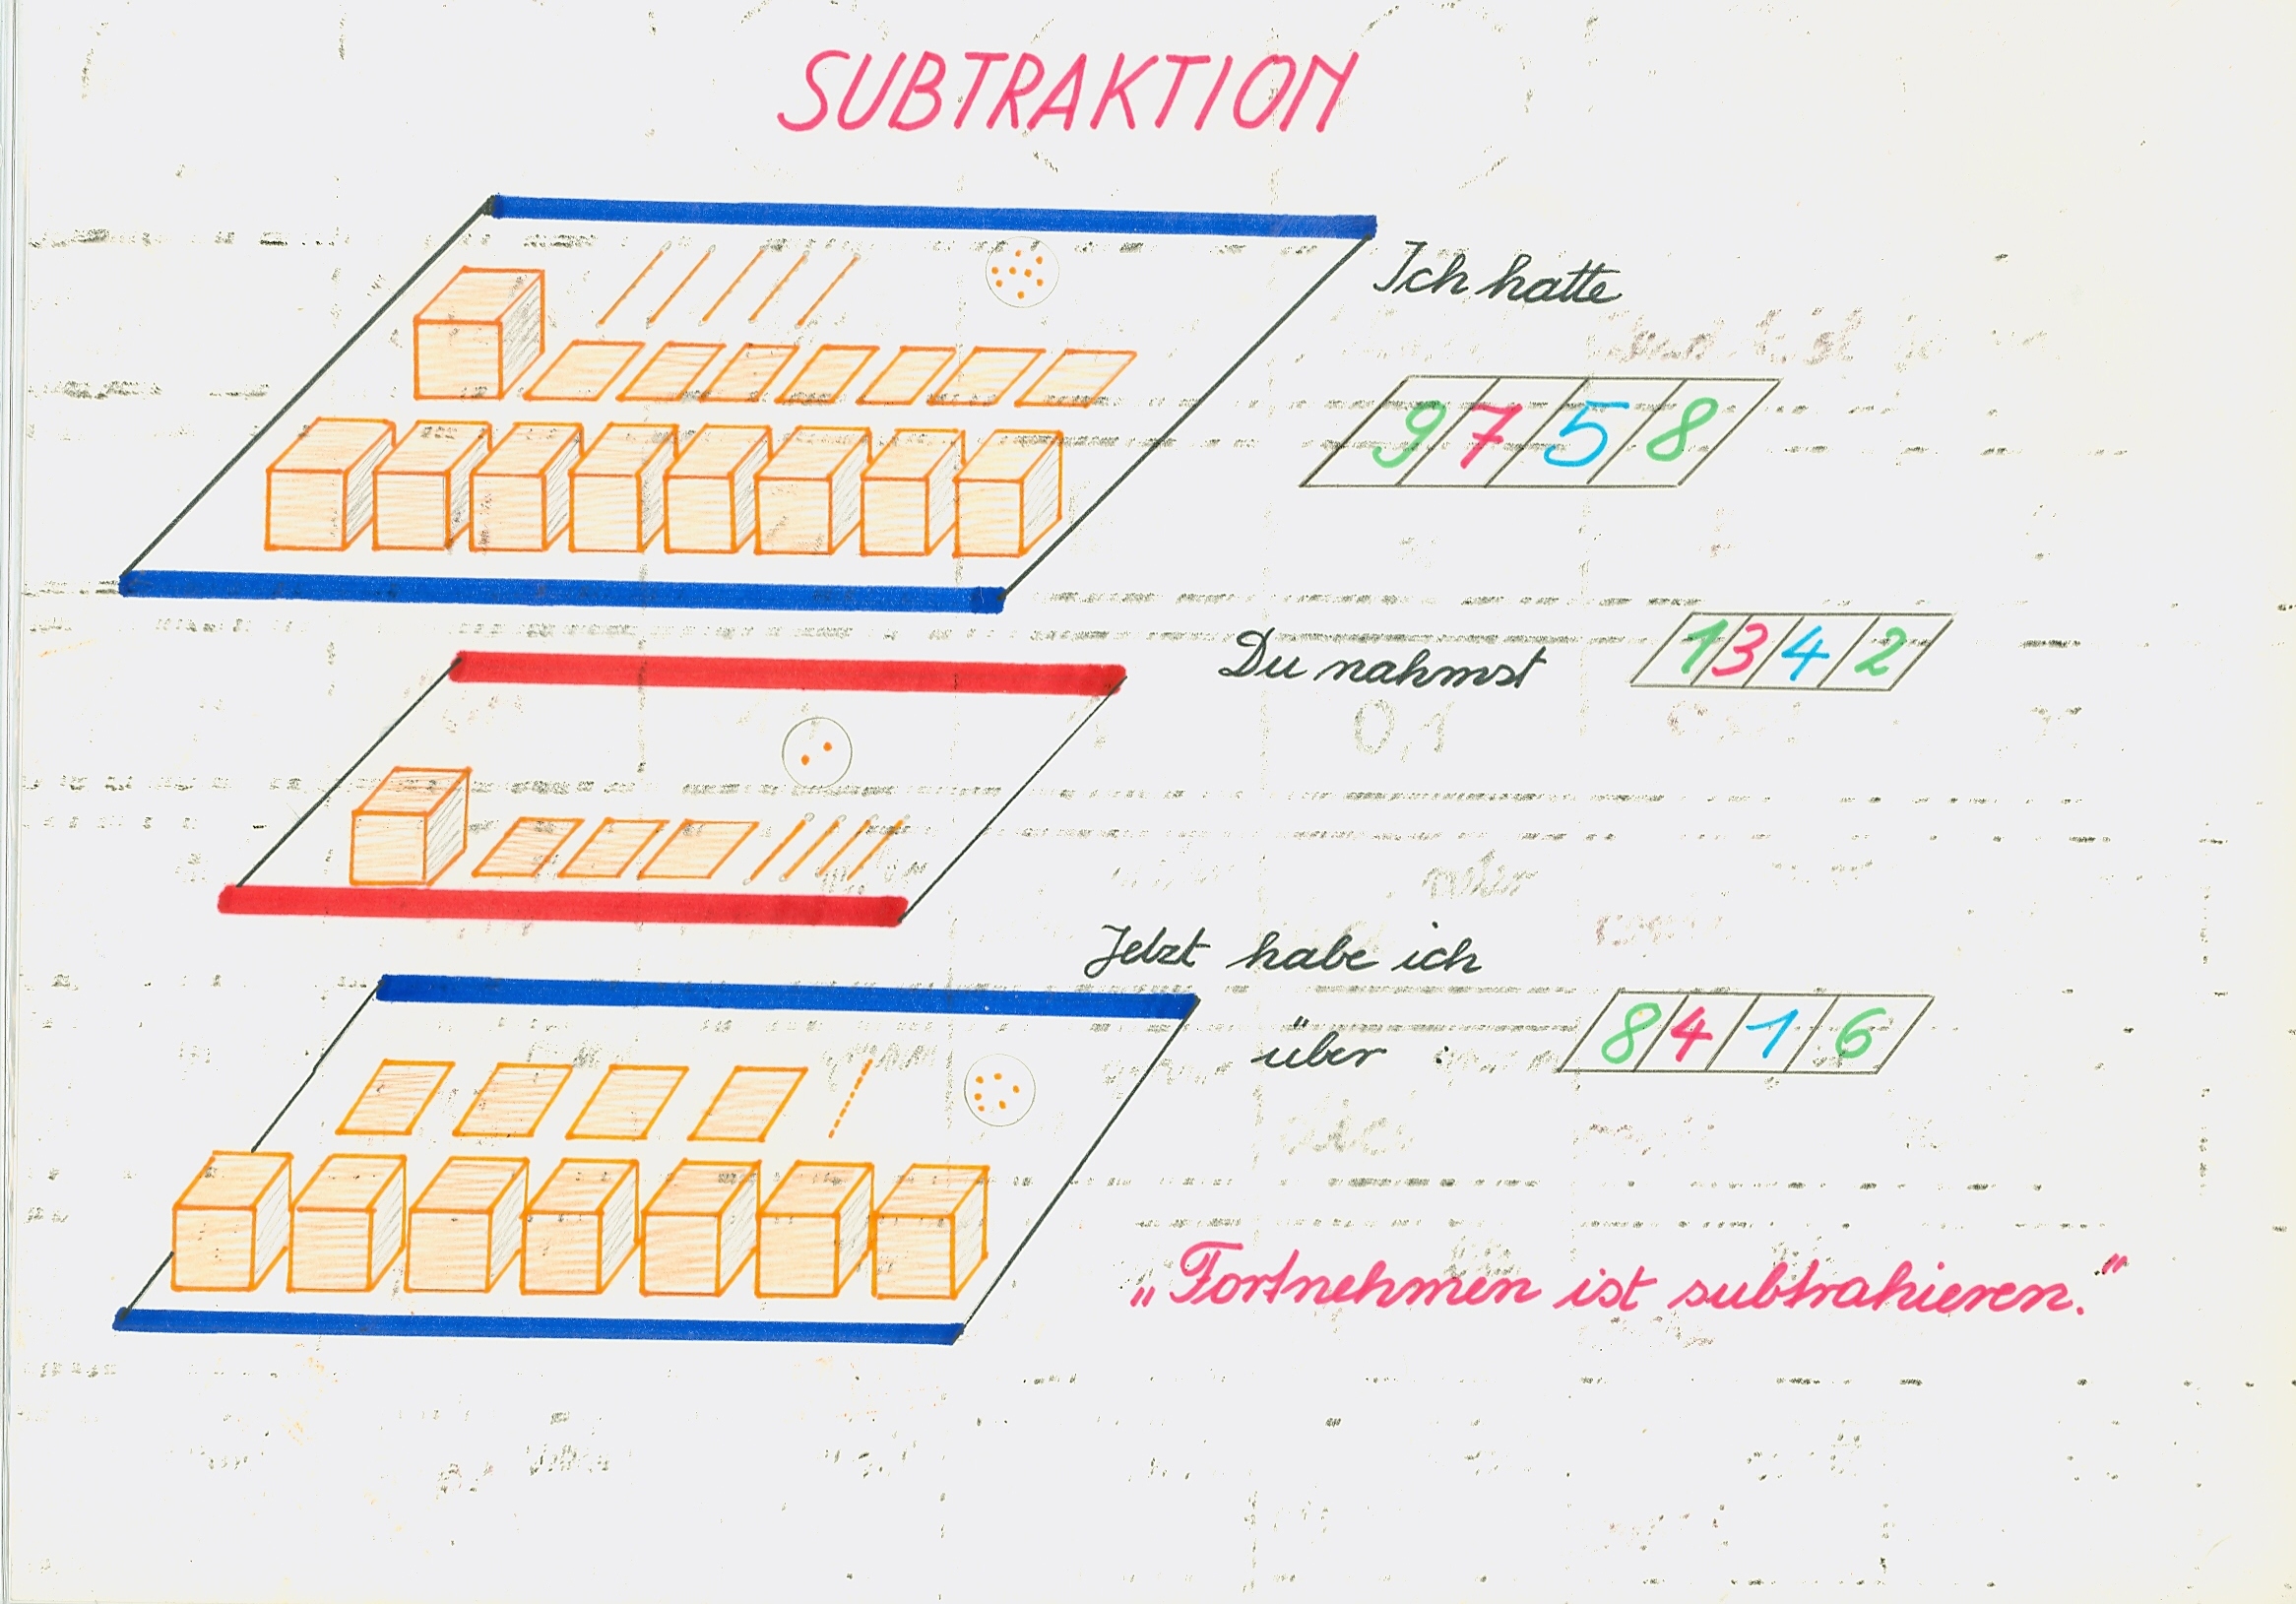 SUBTRAKTION
Ich hatte
9 7 5 8
Du nahmst
1 3 4 2
Jetzt habe ich
über
8 4 1 6
„Fortnehmen ist subtrahieren.“